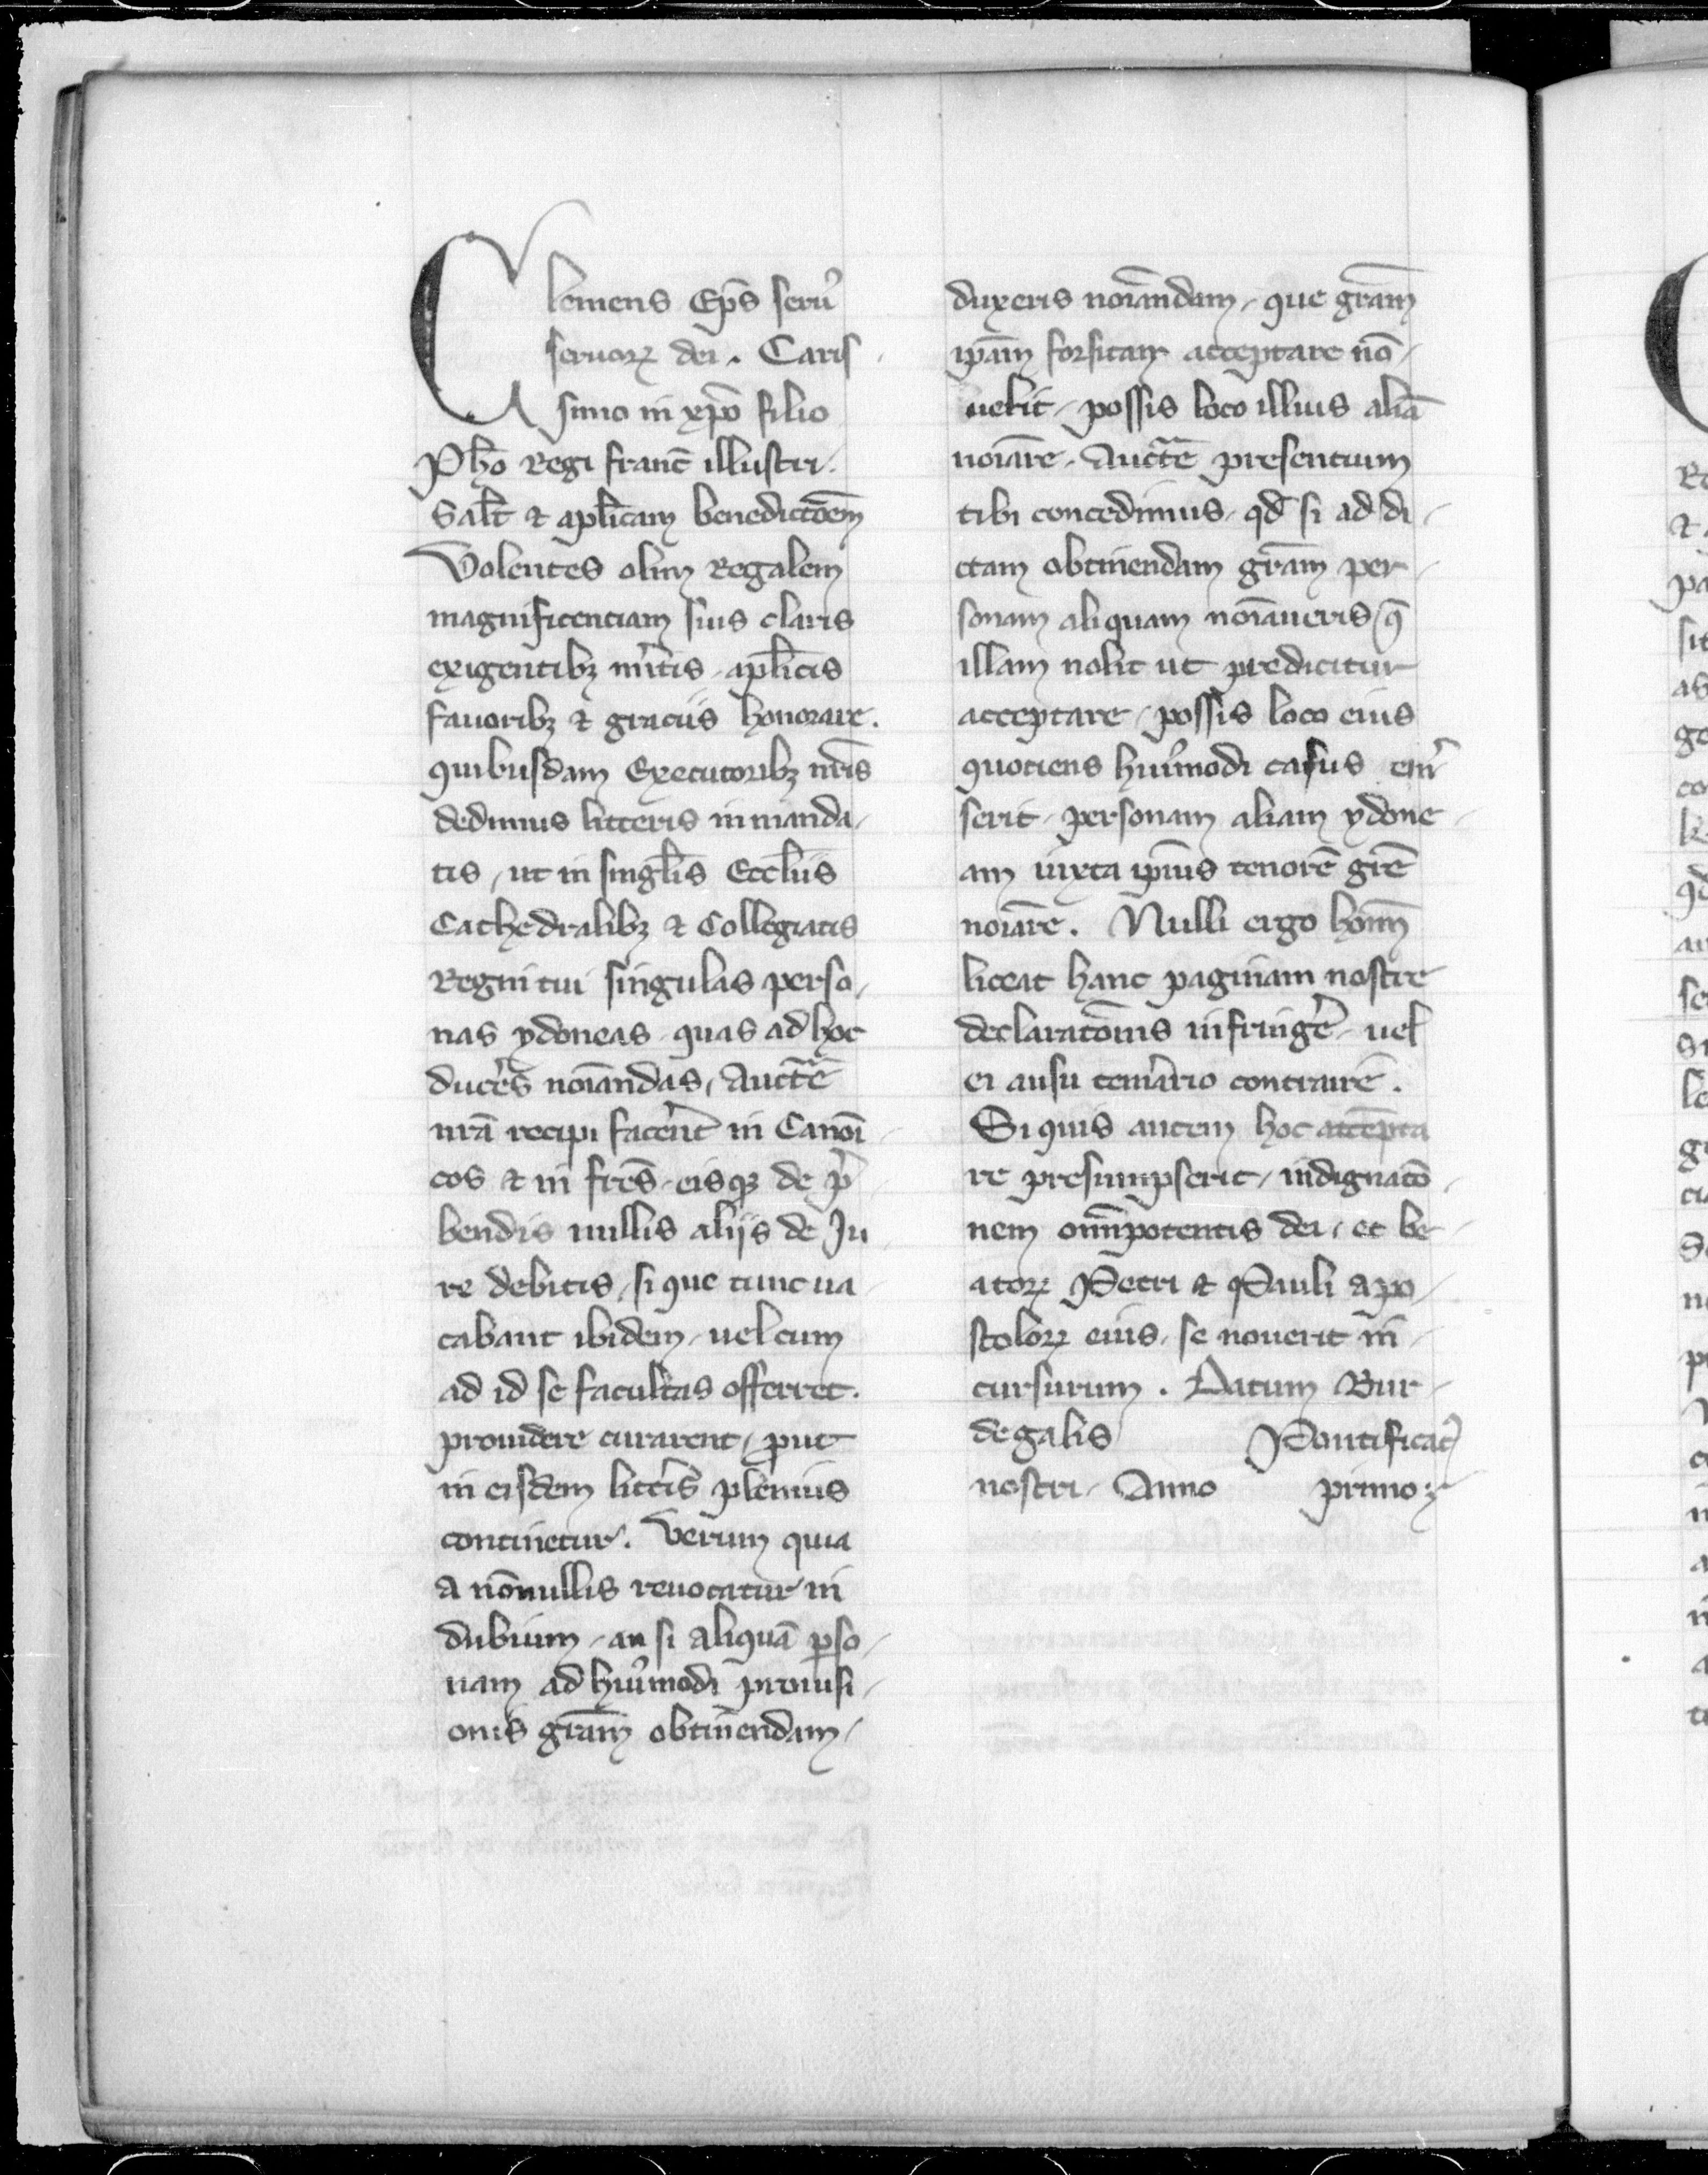 Clemens Ep̄s seruꝰ
seruoꝝ dei. Caris
simo in xp̄o filio
Ph̄o Regi franc̄ illustri.
Salt̄ ⁊ apl̄icam benedictōem
Volentes olim Regalem
magnificenciam suis claris
exigentibꝫ mͥtis apl̄icis
fauoribꝫ ⁊ graciis honorare.
quibusdam Executoribꝫ nr̄is
dedimus litteris in manda-
tis, ut in singl̄is Eccl̄iis
Cathedralibꝫ ⁊ Collegiatis
Regni tui singulas perso-
nas ydoneas quas ad hoc
ducer̄s noīandas, Auctͣte
nrā recipi facerēt in Canoni-
cos ⁊ in fr̄es, eisqꝫ de pre-
bendis nullis alijs de Ju-
re debitis, si que tunc ua-
cabant ibidem, uel cum
ad id se facultas offerret.
prouidere curarent, ꝓut
in eisdem litteris̄ plenius
continetur. Verum quia
a nōnnullis reuocatur in
dubium, an si aliquā ꝑso-
nam ad huiꝰmodi prouisi-
onis gr̄am obtinendam,
duxeris noīandam, que gr̄am
ip̄am forsitan acceptare nō
uelit, possis loco illius aliā
noīare. Auctͣte presentium
tibi concedimus, qd̄ si ad di-
ctam obtinendam gr̄am per-
sonam aliquam noīaueris, q̄
illam nolit ut predicitur
acceptare, possis loco eius
quotiens huiꝰmodi casus emͥ
serit, personam aliam ydone-
am iuxta ip̄ius tenorē gr̄e
noīare. Nulli ergo hoīm
liceat hanc paginam nostre
declaratōnis infringēre, uel
ei ausu temͣrio contraire.
Si quis autem hoc attēpta
re presumpserit, indignatō-
nem om̄ipotentis dei, et be-
atoꝝ Petri ⁊ Pauli apo-
stoloꝝ eius, se nouerit in-
cursurum. Datum Bur-
degalis Pontificatꝰ
nostri, Anno primo